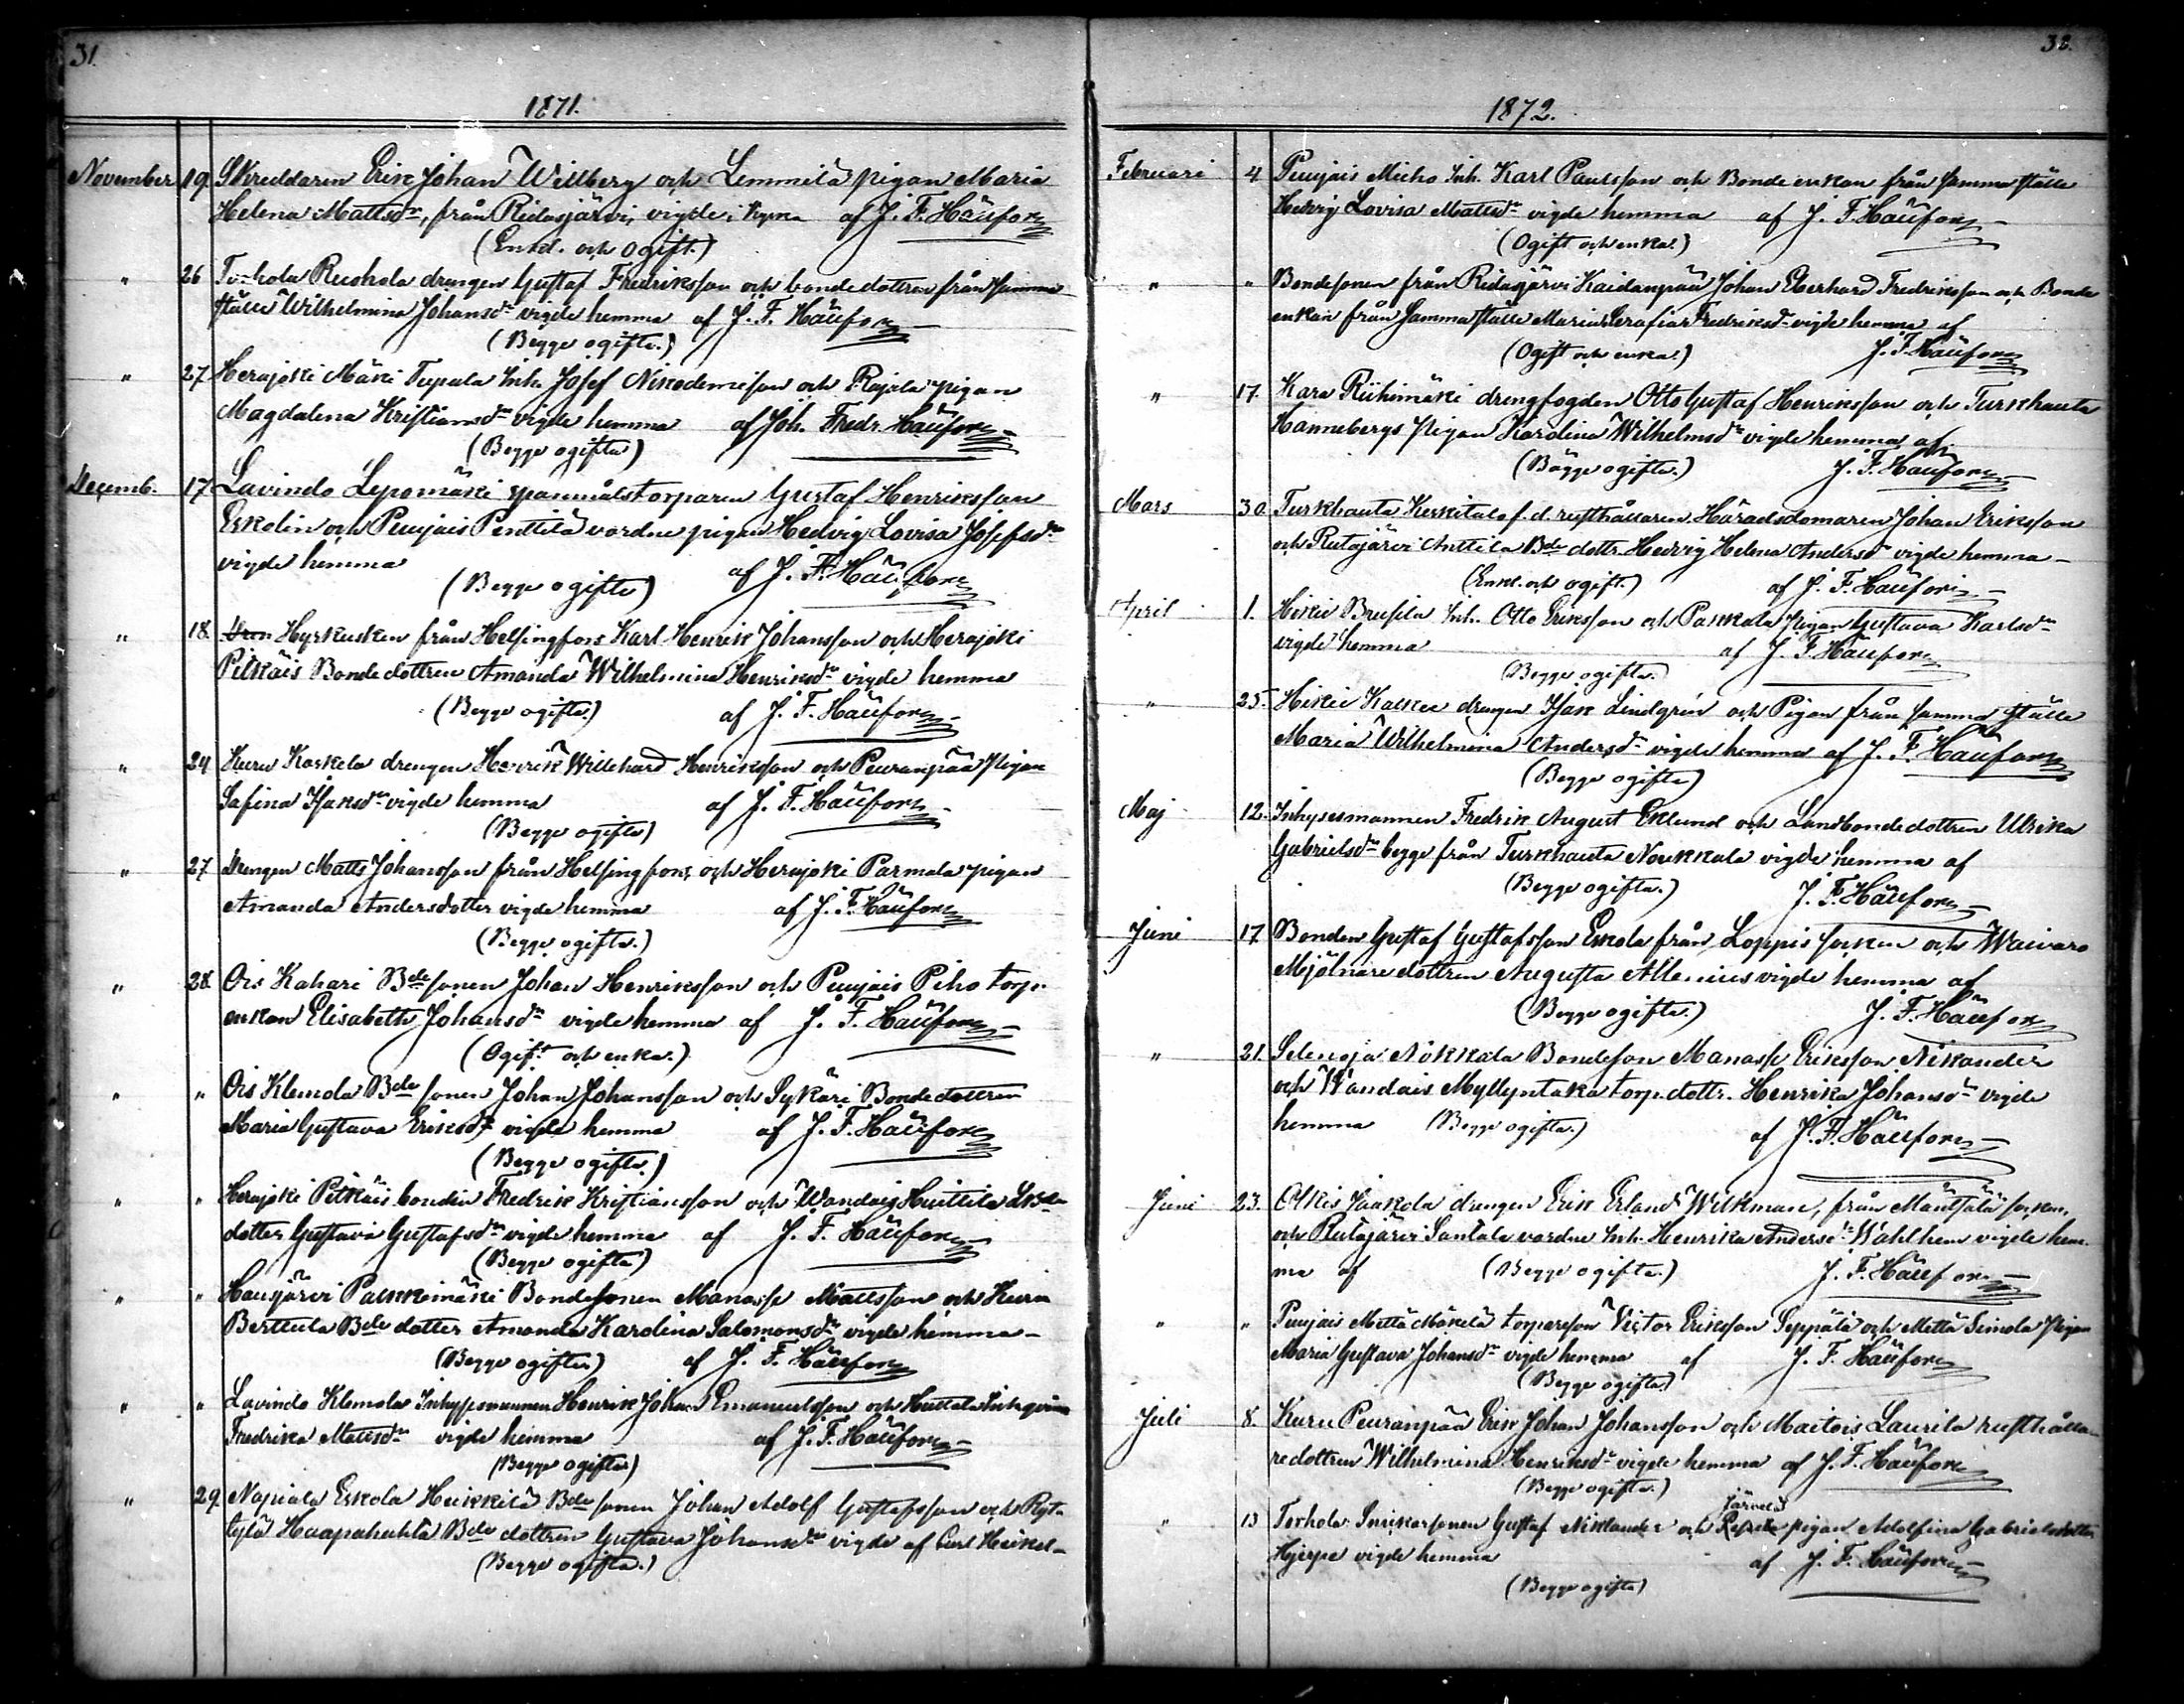 31.
1871.
November 19. Skreddaren Erik Johan Willberg och Lemmilä pigan Maria
Helena Mattsdr, från Ridasjärvi, vigde i kyrka af J. F. Häufors
(Enkl. och Ogift.)
" 26 Torhola Ruohola drengen Gustaf Fredriksson och bondedottren från samma
ställe Wilhelmina Johansdr vigde hemma af J. F. Häufors
(Begge ogifta.)
" 27 Herajoki Mäki Tupala Inh. Josef Nikodemisson och Rajala pigan
Magdalena Kristiansdr vigde hemma af Joh. Fredr. Häufors
(Begge ogifta)
Decemb. 17. Lavindo Lepomäki spannmålstorparen Gustaf Henriksson
Eskolin och Puujais Penttilä vordne pigan Hedvig Lovisa Josefsdr
vigde hemma af J. F. Häufors
(Begge ogifta)
" 18. Hyrkusken från Helsingfors Karl Henrik Johansson och Herajoki
Pitkäis Bondedottren Amanda Wilhelmina Henriksdr vigde hemma
(Begge ogifta.) af J. F. Häufors
" 24 Kuru Koskela drengen Henrik Willehard Henriksson och Peuranpää pigan
Safina Isaksdr vigde hemma af J. F. Häufors
(Begge ogifta)
" 27 Drengen Matts Johansson från Helsingfors och Herajoki Parmala pigan
Amanda Andersdotter vigde hemma af J. F. Häufors
(Begge ogifta.)
" 28. Ois Kahari Bde sonen Johan Henriksson och Puujais Piho torp.
enkan Elisabeth Johansdr vigde hemma af J. F. Häufors
(Ogift och enka.)
" " Ois Klemola Bde sonen Johan Johansson och Sykäri Bondedottren
Maria Gustava Eriksdr vigde hemma af J. F. Häufors
(Begge ogifta.)
" " Herajoki Pitkäis bonden Fredrik Kristiansson och Wandais Huittila
dotter Gustava Gustafsdr vigde hemma af J. F. Häufors
(Begge ogifta)
" " Hausjärvi Palkkimäki Bondesonen Manasse Mattsson och Kuru
Berttula Bde dotter Amanda Karolina Salomonsdr vigde hemma
(Begge ogifta) af J. F. Häufors
" " Lavindo Klemola Inhysesmannen Henrik Johan Emanuelsson och
Fredrika Mattsdr vigde hemma af J. F. Häufors
(Begge ogifta)
" 29. Nopiala Eskola Heikkilä Bde sonen Johan Adolf Gustafsson och Ryt-
tylä Haapahuhta Bde dottren Gustava Johansdr vigde af Carl
(Begge ogifta.)
32.
1872.
Februari 4 Puujais Micho Inh. Karl Paulsson och Bonde enkan från samma ställe
Hedvig Lovisa Mattsdr vigde hemma af J. F. Häufors
(Ogift och enka.)
" " Bondesonen från Ridasjärvi Kaidanpää Johan Eberhard Fredriksson och Bonde
enkan från samma ställe Maria Serafia Fredriksdr vigde hemma af
(Ogift och enka.) J. F. Häufors
" 17. Kara Riihimäki drengfogden Otto Gustaf Henriksson och Turkhauta
Hannebergs pigan Karolina Wilhelmsdr vigde hemma af
(Begge ogifta.) J. F. Häufors
Mars 30. Turkhauta Kerkkitalo f. d. rusthållaren Häradsdomaren Johan Eriksson
och Rutajärvi Anttila Bde dottr. Hedvig Helena Andersdr vigde hemma
(Enkl. och ogift.) af J. F. Häufors
April 1. Hikiä Brusila Inh. Otto Eriksson och Paskala Pigan Gustava Karlsdr
vigde hemma af J. F. Häufors
(Begge ogifta.)
" 25. Hikiä drengen Isak Lindgrén och Pigan från samma ställe
Maria Wilhelmina Andersdr vigde hemma af J. F. Häufors
(Begge ogifta)
Maj 12. Inhysesmannen Fredrik August Eklund och Landbondedottren Ulrika
Gabrielsdr begge från Turkhauta Noukkala vigde hemma af
(Begge ogifta.) J. F. Häufors
Juni 17 Bonden Gustaf Gustafsson Eskola från Loppis socken och Waivaro
Mjölnaredottren Augusta Allenius vigde hemma af
(Begge ogifta.) J. F. Häufors
" 21. Selenoja Nokkala Bondeson Manasse Eriksson Nikander
och Wandais Myllyntaka torp. dottr. Henrika Johansdr vigde
hemma (Begge ogifta.) af J. F. Häufors
Juni 23. Olkis Jaakola drengen Erik Erland Wilkman, från Mäntsälä socken,
och Rutajärvi Santala vordne Inh. Henrika Andersdr Wahlhem vigde hem-
ma af (Begge ogifta.) J. F. Häufors
" " Puujais Mettä Mäkelä torpareson Victor Eriksson Seppälä och Mettä Simola Pigan
Maria Gustava Johansdr vigde hemma af J. F. Häufors
(Begge ogifta.)
Juli 8. Kuru Peuranpää Erik Johan Johansson och Maitois Laurila rusthålla-
redottren Wilhelmina Henriksdr vigde hemma af J. F. Häufors
(Begge ogifta.)
" 13 Torhola Snickarsonen Gustaf Niklander och Järvelä pigan Adolfina Gabrielsdotter
Hjerpe vigde hemma af J. F. Häufors
(Begge ogifta)